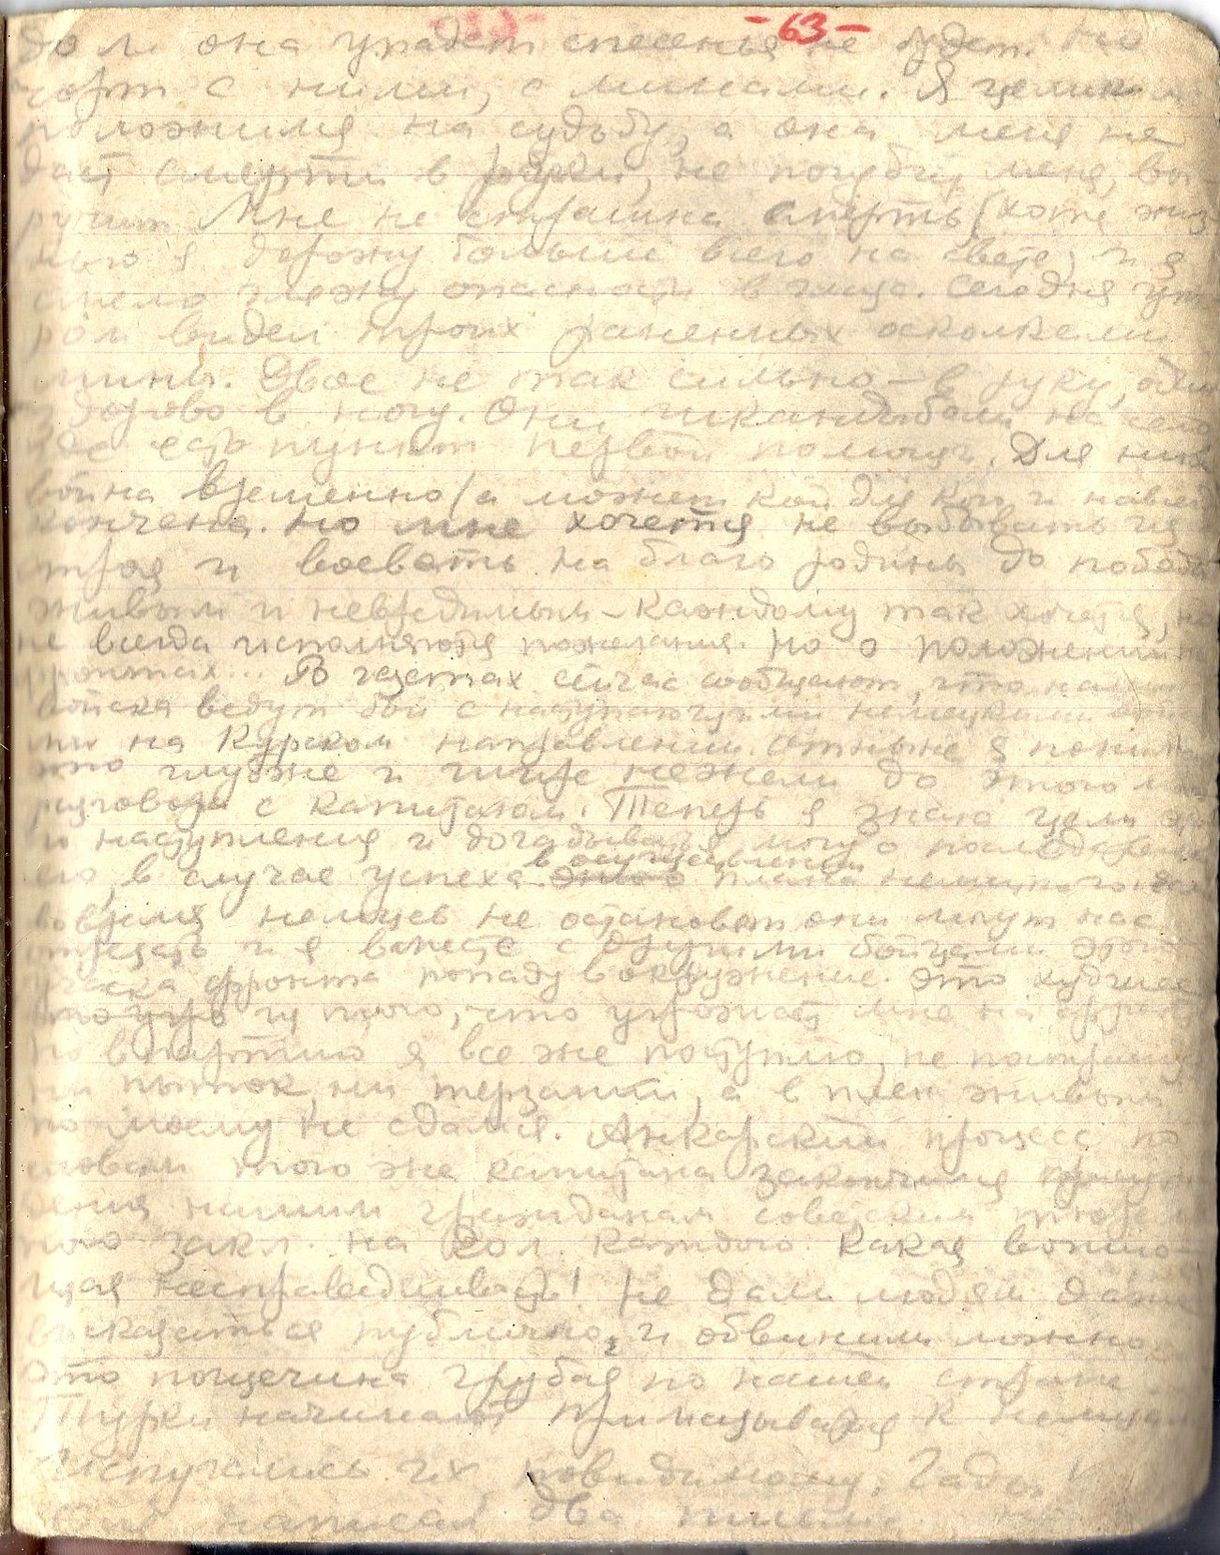 -63-
дом она упадет спесенья не будет. Но
чорт с ними, с минами. Я целиком
положился на судьбу, а она меня не
даст смерти в руки, не погубит меня, вы-
ручит. Мне не страшна смерть (хотя жиз-
нью я дорожу больше всего на свете) и я
смело гляжу опасности в лицо. Сегодня ут-
ром видел троих раненных осколками
мины. Двое не так сильно – в руку, один
здорово в ногу. Они на село
где есть пункт первой помощи. Для них
война временно (а может кой для кого и навсегда
кончена. Но мне хочется не выбывать из
строя и воевать на благо родины до победы
живым и невредимым – каждому так хочется, но
не всегда исполняются пожелания. Но о положении на
фронтах... В газетах сейчас сообщают, что наши
войска ведут бои с наступающими немецкими
на Курском направлении. Отныне я понимаю
это глубже и шире нежели до этого
разговора с капитаном. Теперь я знаю цели этого
наступления и догадываться могу о последствиях
его, в случае успеха в осуществлении плана немецкого.
вовремя немцев не остановят они могут нас
отрезать и я вместе с другими бойцами этого
участка фронта попаду в окружение. Это худшее
из того, что угрожает мне на фронте
Но в партию я все же поступлю, не
ни пыток, ни терзаний, а в плен живым
по-моему не сдамся. Анкарский процесс по
словам того же капитана закончился
дения нашим гражданам советским
закл. на 20 л. каждого. Какая вопию-
щая несправедливость! Не дали людям даже
высказаться публично, и обвинили ложно.
Это пощечина грубая по нашей стране
Турки начинают примазываться к немцам
Испугались их, повидимому, гады.
написал два письма